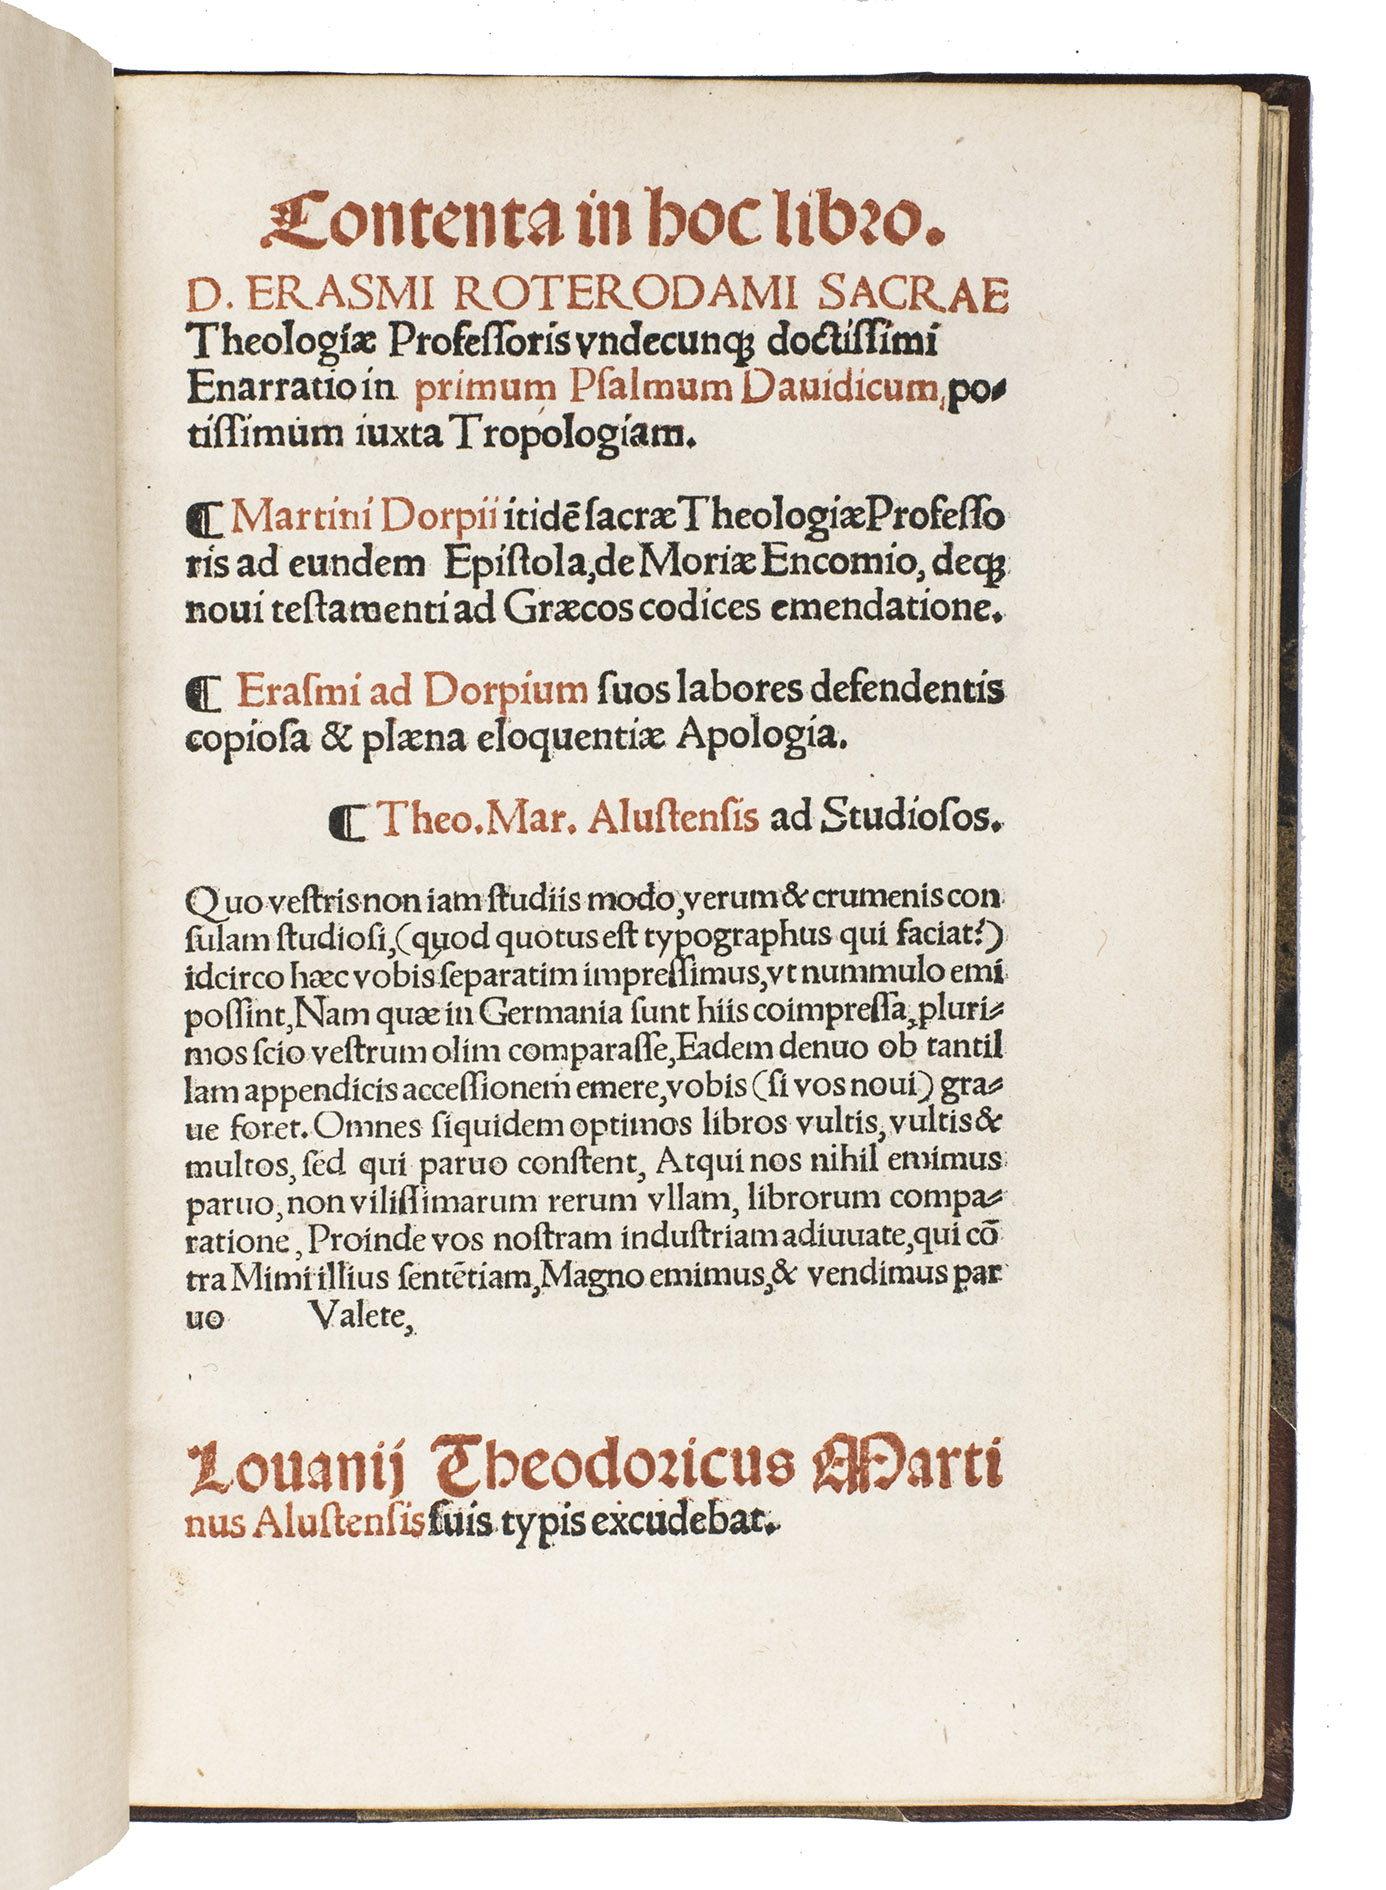 Contenta in hoc libro.
D. ERASMI ROTERODAMI SACRAE
Theologiæ Profeſſoris vndecunqꝫ doctiſſimi
Enarratio in primum Pſalmum Dauidicum, po⸗
tiſſimum iuxta Tropologiam.
¶ Martini Dorpii itidē ſacræ Theologiæ Profeſſo
ris ad eundem Epiſtola, de Moriæ Encomio, deqꝫ
noui teſtamenti ad Græcos codices emendatione.
¶ Eraſmi ad Dorpium ſuos labores defendentis
copioſa & plæna eloquentiæ Apologia.
¶ Theo. Mar. Aluſtenſis ad Studioſos.
Quo veſtris non iam ſtudiis modo, verum & crumenis con
ſulam ſtudioſi, (quod quotus eſt typographus qui faciat?)
idcirco hæc vobis ſeparatim impreſſimus, vt nummulo emi
poſſint, Nam quæ in Germania ſunt hiis coimpreſſa, pluri⸗
mos ſcio veſtrum olim comparaſſe, Eadem denuo ob tantil
lam appendicis acceſſionem emere, vobis (ſi vos noui) gra⸗
ue foret. Omnes ſiquidem optimos libros vultis, vultis &
multos, ſed qui paruo conſtent, Atqui nos nihil emimus
paruo, non viliſſimarum rerum vllam, librorum compa⸗
ratione, Proinde vos noſtram induſtriam adiuuate, qui cō
tra Mimi illius ſentētiam, Magno emimus, & vendimus par
uo Valete,
Louanij Theodoricus Marti
nus Aluſtenſis ſuis typis excudebat.